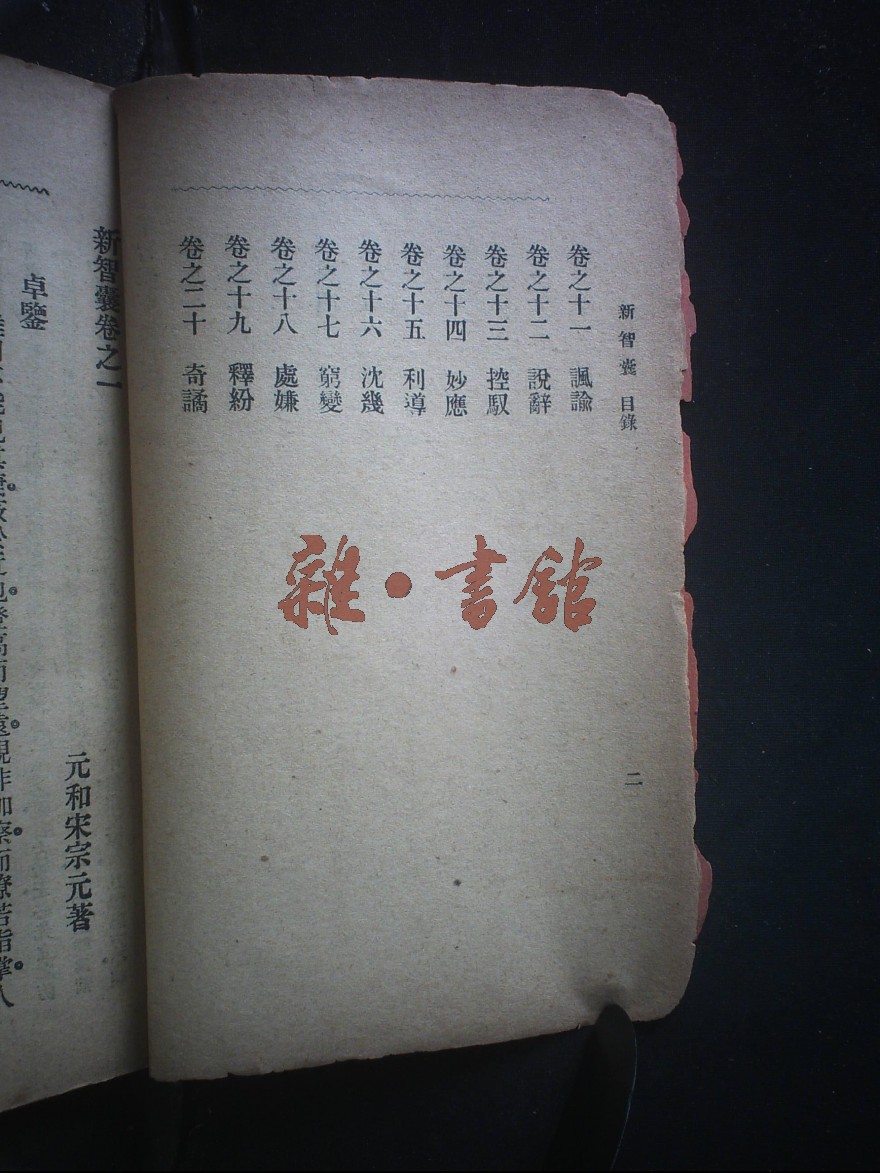 新智囊 目錄
二
卷之十一 諷諭
卷之十二 說辭
卷之十三 控馭
卷之十四 妙應
卷之十五 利導
卷之十六 沈幾
卷之十七 窮變
卷之十八 處嫌
卷之十九 釋紛
卷之二十 奇譎
雜·書館
新智囊卷之一
元和宋宗元著
卓鑒
登高而望遠